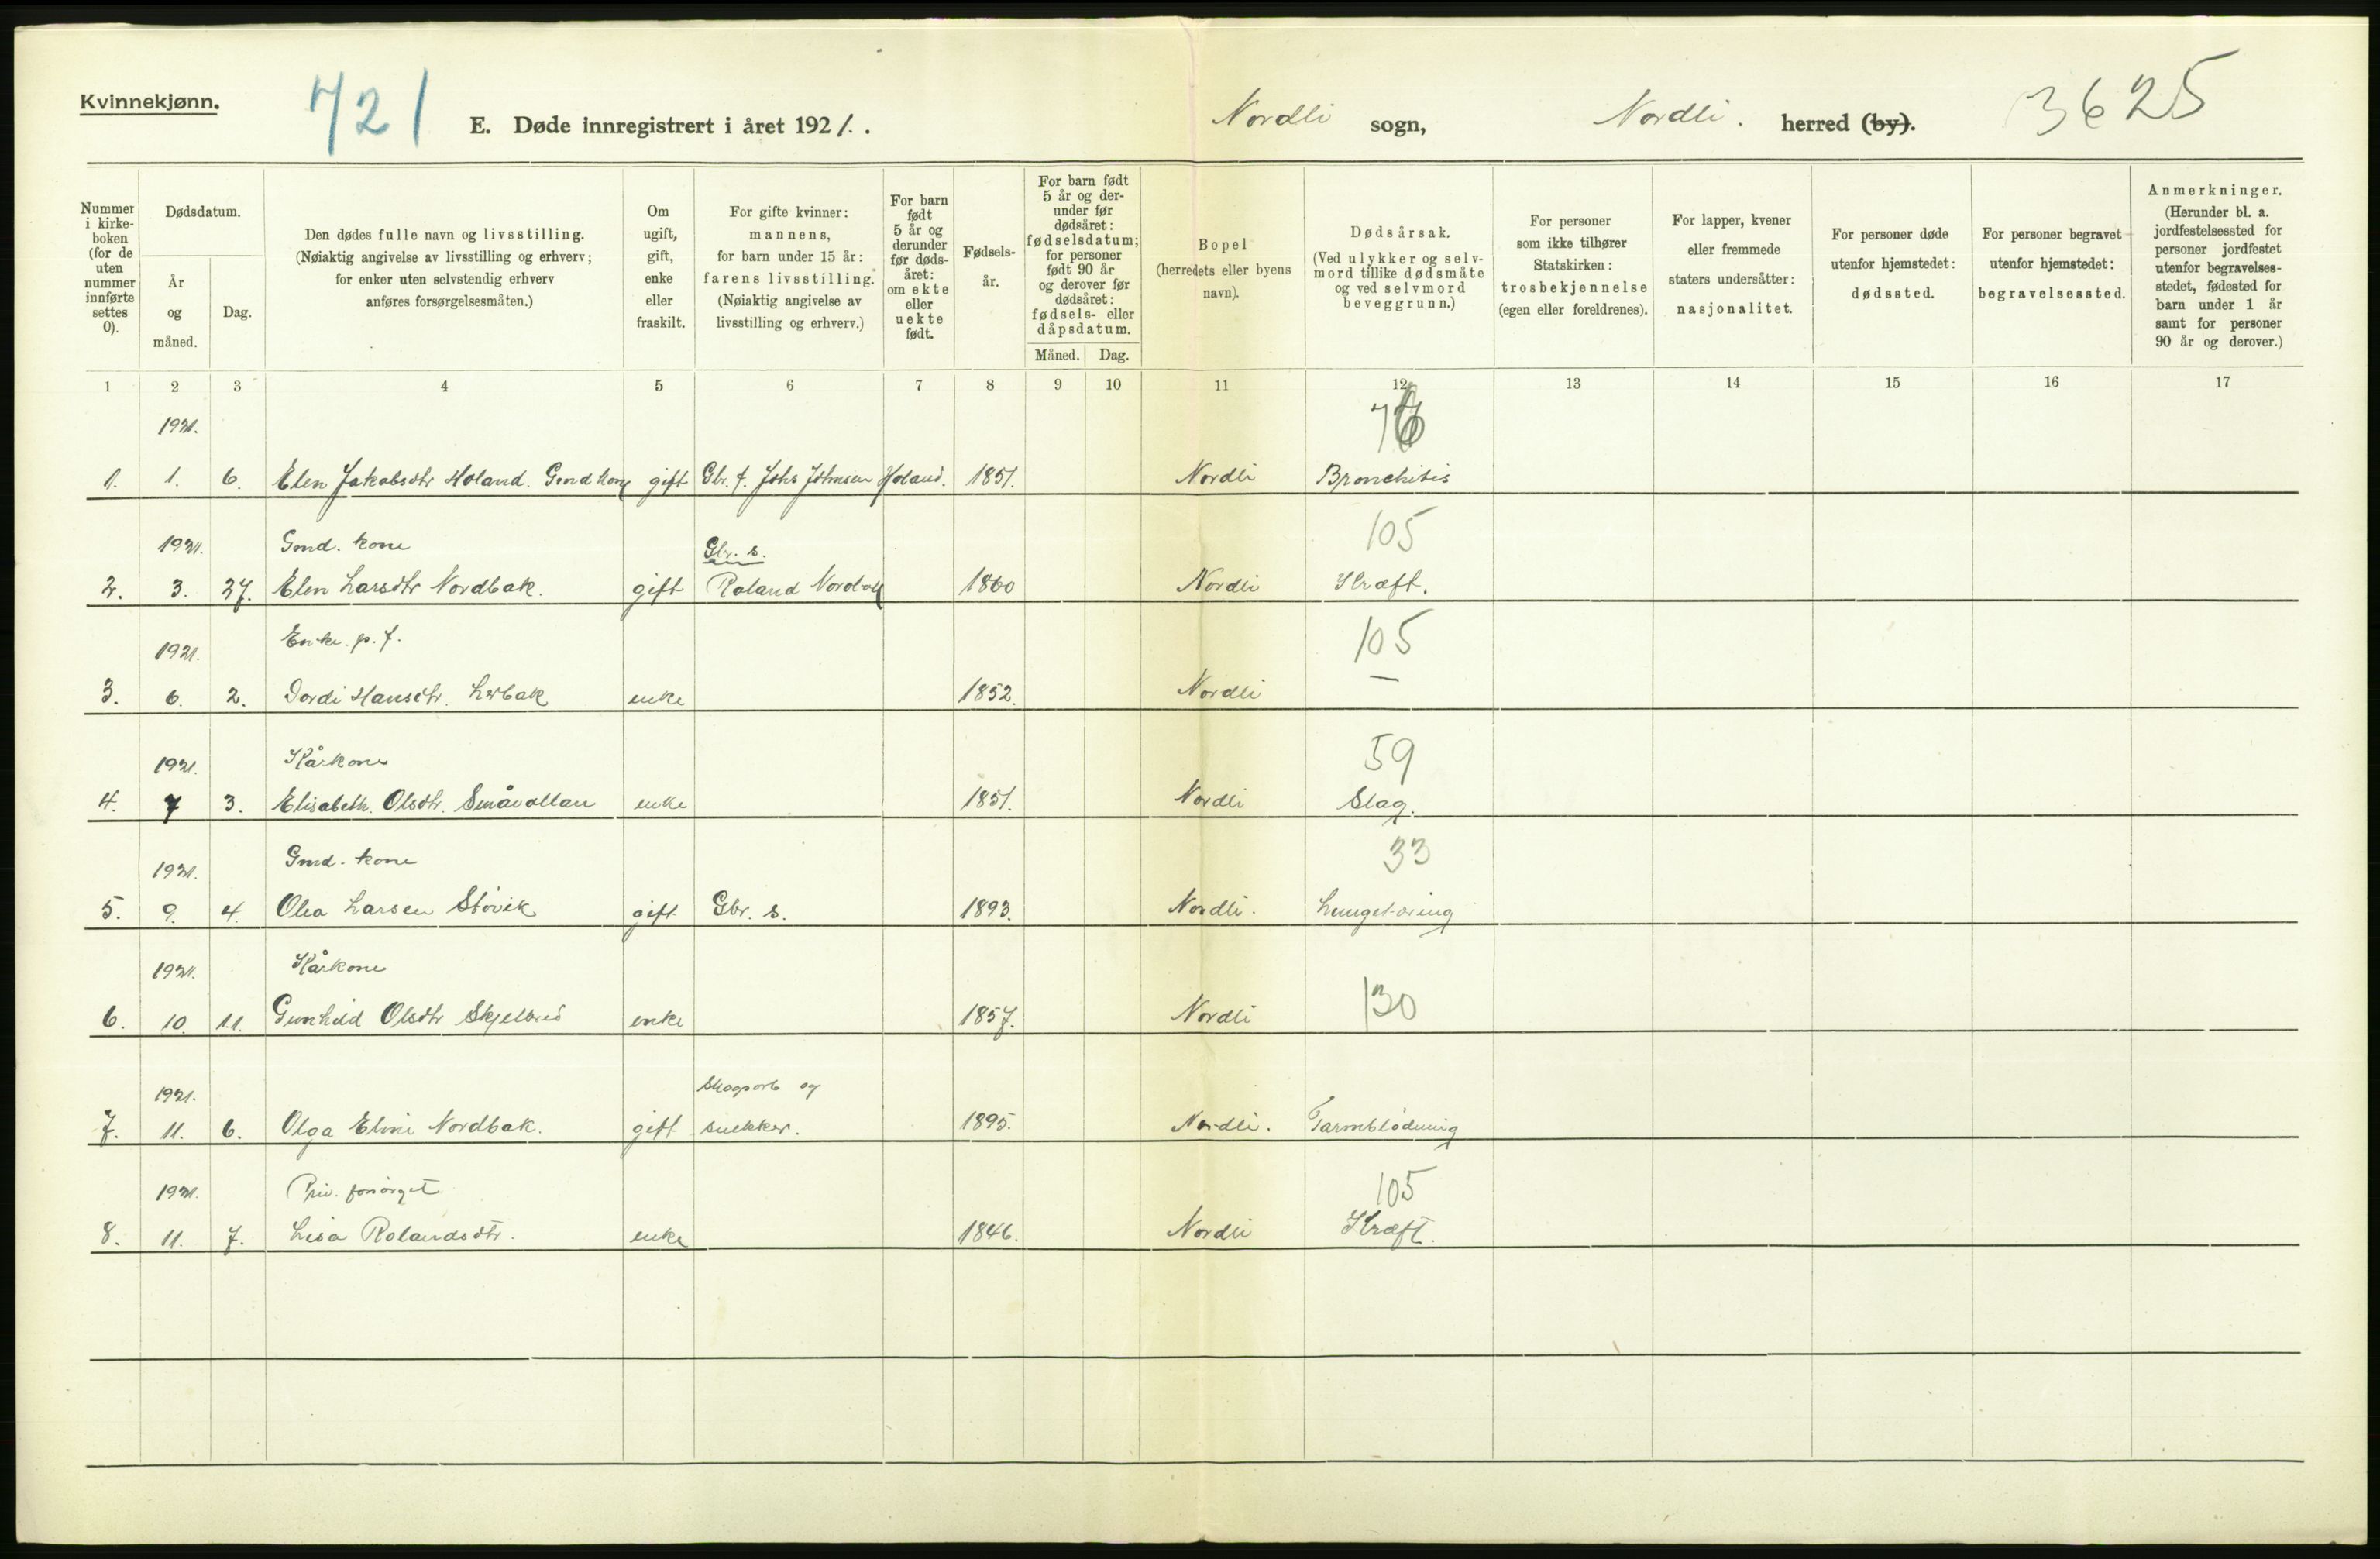 Kvinnekjønn.
721
E. Døde innregistrert i året 1921.
Nordli sogn,
Nordli. herred (by).
3625
Nummer i kirke-boken (for de uten nummer innførte settes 0).
Dødsdatum.
År og måned.
Dag.
Den dødes fulle navn og livsstilling.
(Nøiaktig angivelse av livsstilling og erhverv;
for enker uten selvstendig erhverv
anføres forsørgelsesmåten.)
Om ugift, gift, enke eller fraskilt.
For gifte kvinner:
mannens,
for barn under 15 år:
farens livsstilling.
(Nøiaktig angivelse av
livsstilling og erhverv.)
For barn født 5 år og derunder før døds-året: om ekte eller uekte født.
Fødsels-år.
For barn født 5 år og der-under før dødsåret: fødselsdatum; for personer født 90 år og derover før dødsåret: fødsels- eller dåpsdatum.
Måned. Dag.
Bopel
(herredets eller byens
navn).
Dødsårsak.
(Ved ulykker og selv-
mord tillike dødsmåte
og ved selvmord
beveggrunn.)
For personer
som ikke tilhører
Statskirken:
trosbekjennelse
(egen eller foreldrenes).
For lapper, kvener
eller fremmede
staters undersåtter:
nasjonalitet.
For personer døde
utenfor hjemstedet:
dødssted.
For personer begravet
utenfor hjemstedet:
begravelsessted.
Anmerkninger.
(Herunder bl. a.
jordfestelsessted for
personer jordfestet
utenfor begravelses-
stedet, fødested for
barn under 1 år
samt for personer
90 år og derover.)
1 2 3 4 5 6 7 8 9 10 11 12 13 14 15 16 17
1921.
1. 1. 6. Elen Jakobsdtr Holand. Gmd kone gift Gbr. f. Johs Johnsen Holand. 1851. Nordli Bronchitis
1921. Gmd. kone Gbr. s. 105
2. 3. 27. Elen Larsdtr Nordbak. gift Roland Nordbak 1860 Nordli Kræft.
1921. Enke. p. f. 105
3. 6. 2. Dordi Hansdtr. enke 1852. Nordli —
1921. Kårkone 59
4. 7 3. Elisabeth. Olsdtr. Småvollan enke 1851. Nordli Slag.
1921. Gmd. kone 33
5. 9. 4. Olea Larsen Støvik gift Gbr. s. 1893. Nordli. Lungetæring
1921. Kårkone
6. 10. 11. Gunhild Olsdtr Skjelbred enke 1857. Nordli 130
1921. Skogsarb og
7. 11. 6. Olga Eline Nordbak. gift snekker. 1895. Nordli. Tarmblødning
1921. Priv. forsørget 105
8. 11. 7. Lisa Rolandsdtr. enke 1846. Nordli Kræft.